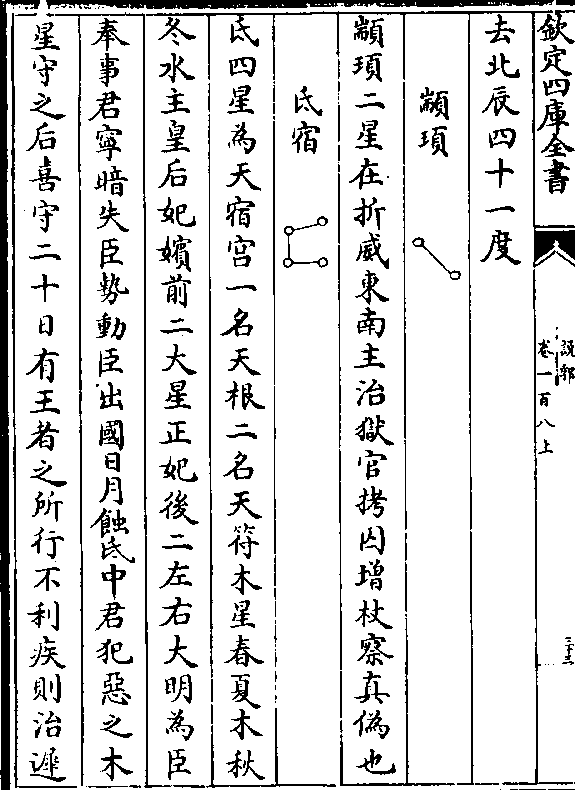 欽定四庫全書
說郛
卷一百八上
三十三
去北辰四十一度
顓頊
顓頊二星在折威東南主治獄官拷囚增杖察真偽也
氐宿
氐四星為天宿宫一名天根二名天符木星春夏木秋
冬水主皇后妃嬪前二大星正妃後二左右大明為臣
奉事君寧暗失臣勢動臣出國日月蝕氐中君犯惡之木
星守之后喜守二十日有王者之所行不利疾則治遲